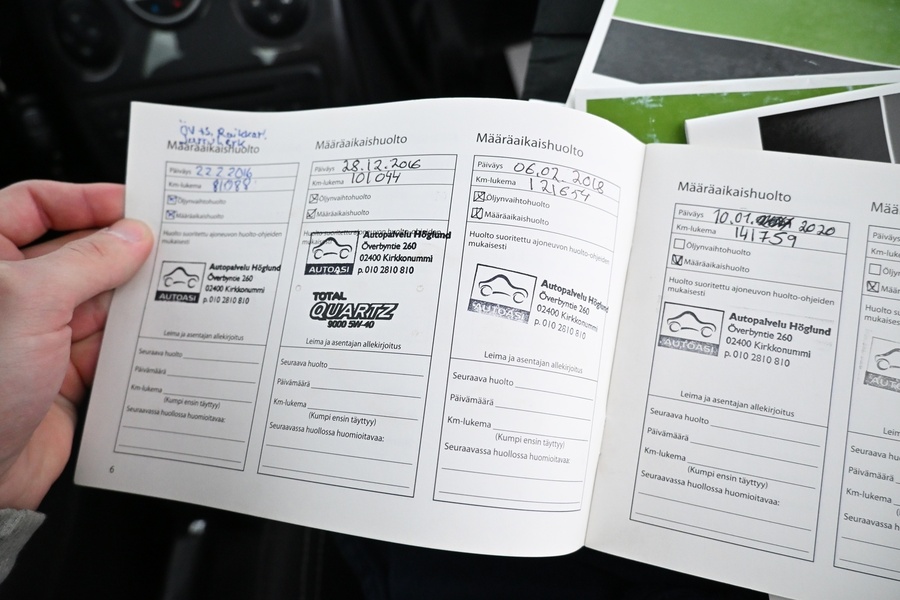 Määräaikaishuolto
Päiväys 22.2.2016
Km-lukema 81088
Öljynvaihtohuolto
Määräaikaishuolto
Huolto suoritettu ajoneuvon huolto-ohjeiden
mukaisesti
AUTOASI
Autopalvelu Höglund
Överbyntie 260
02400 Kirkkonummi
p. 010 2810 810
Leima ja asentajan allekirjoitus
Seuraava huolto
Päivämäärä
Km-lukema
(Kumpi ensin täyttyy)
Seuraavassa huollossa huomioitavaa:
6
Määräaikaishuolto
Päiväys 28.12.2016
Km-lukema 101044
Öljynvaihtohuolto
Määräaikaishuolto
AUTOASI
Autopalvelu Höglund
Överbyntie 260
02400 Kirkkonummi
p. 010 2810 810
TOTAL
QUARTZ
9000 5W-40
Leima ja asentajan allekirjoitus
Seuraava huolto
Päivämäärä
Km-lukema
(Kumpi ensin täyttyy)
Seuraavassa huollossa huomioitavaa:
Määräaikaishuolto
Päiväys 06.02.2018
Km-lukema 121654
Öljynvaihtohuolto
Määräaikaishuolto
Huolto suoritettu ajoneuvon huolto-ohjeiden
mukaisesti
AUTOASI
Autopalvelu Höglund
Överbyntie 260
02400 Kirkkonummi
p. 010 2810 810
Leima ja asentajan allekirjoitus
Seuraava huolto
Päivämäärä
Km-lukema
(Kumpi ensin täyttyy)
Seuraavassa huollossa huomioitavaa:
Määräaikaishuolto
Päiväys 10.01. 2020
Km-lukema 141759
Öljynvaihtohuolto
Määräaikaishuolto
Huolto suoritettu ajoneuvon huolto-ohjeiden
mukaisesti
AUTOASI
Autopalvelu Höglund
Överbyntie 260
02400 Kirkkonummi
p. 010 2810 810
Leima ja asentajan allekirjoitus
Seuraava huolto
Päivämäärä
Km-lukema
(Kumpi ensin täyttyy)
Seuraavassa huollossa huomioitavaa:
Määrä
Päiväys
Km-lukema
Öljynv
Määrä
Huolto suo
mukaisesti
Seuraava huo
Päivämäärä
Km-lukema
Seuraavassa h